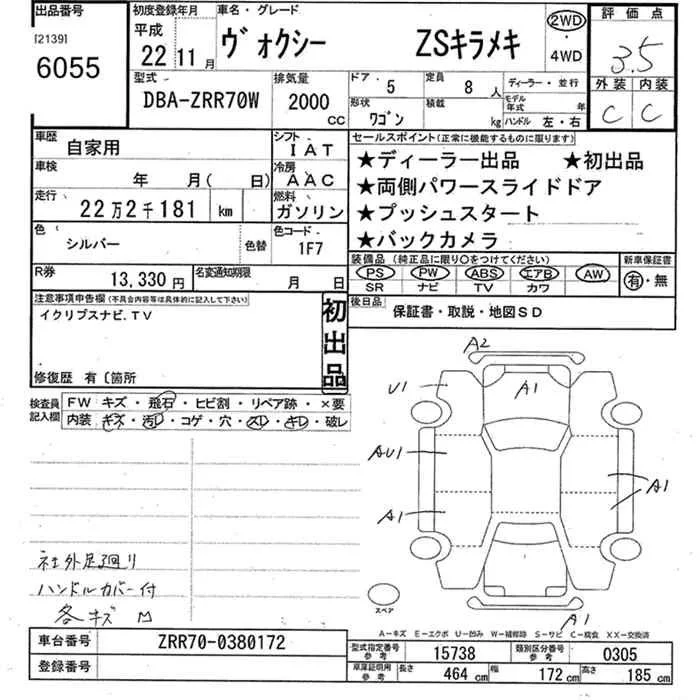 出品番号
[2139]
6055
初度登録年月
平成
22 11月
車名・グレード
ヴォクシー ZSキラメキ
2WD
・
4WD
評価点
3.5
外装 内装
C C
型式
DBA-ZRR70W
排気量
2000
CC
ドア・ 5
定員 8 人
形状 ワゴン
積載 kg
ディーラー・並行
モデル年式 年
ハンドル 左・右
車歴
自家用
シフト・
IAT
車検
年 月( 日)
冷房
AAC
走行
22万2千181 km
燃料
ガソリン
色
シルバー
色替
色コード・
1F7
R券
13,330円
名変通知期限
月 日
セールスポイント(正常に機能するものに限ります)
★ディーラー出品 ★初出品
★両側パワースライドドア
★プッシュスタート
★バックカメラ
装備品(純正品に限り○をつけてください)
PS PW ABS エアB AW
SR ナビ TV カワ
新車保証書
有・無
後日品
保証書・取説・地図SD
注意事項申告欄(不具合内容等は具体的に記入して下さい)
イクリプスナビ.TV
初出品
修復歴 有〔箇所
検査員記入欄
FW キズ・飛石・ヒビ割・リペア跡・×要
内装 キズ・汚レ・コゲ・穴・スレ・キレ・破レ
A2
U1
A1
AU1
A1
A1
A1
スペア
社外足廻り
ハンドルカバー付
各キズ M
A-キズ E-エクボ U-凹み W-補修跡 S-サビ C-腐食 XX-交換済
車台番号
ZRR70-0380172
登録番号
型式指定番号参考
15738
類別区分番号参考
0305
車庫証明用参考
長さ 464 cm 幅 172 cm 高さ 185 cm